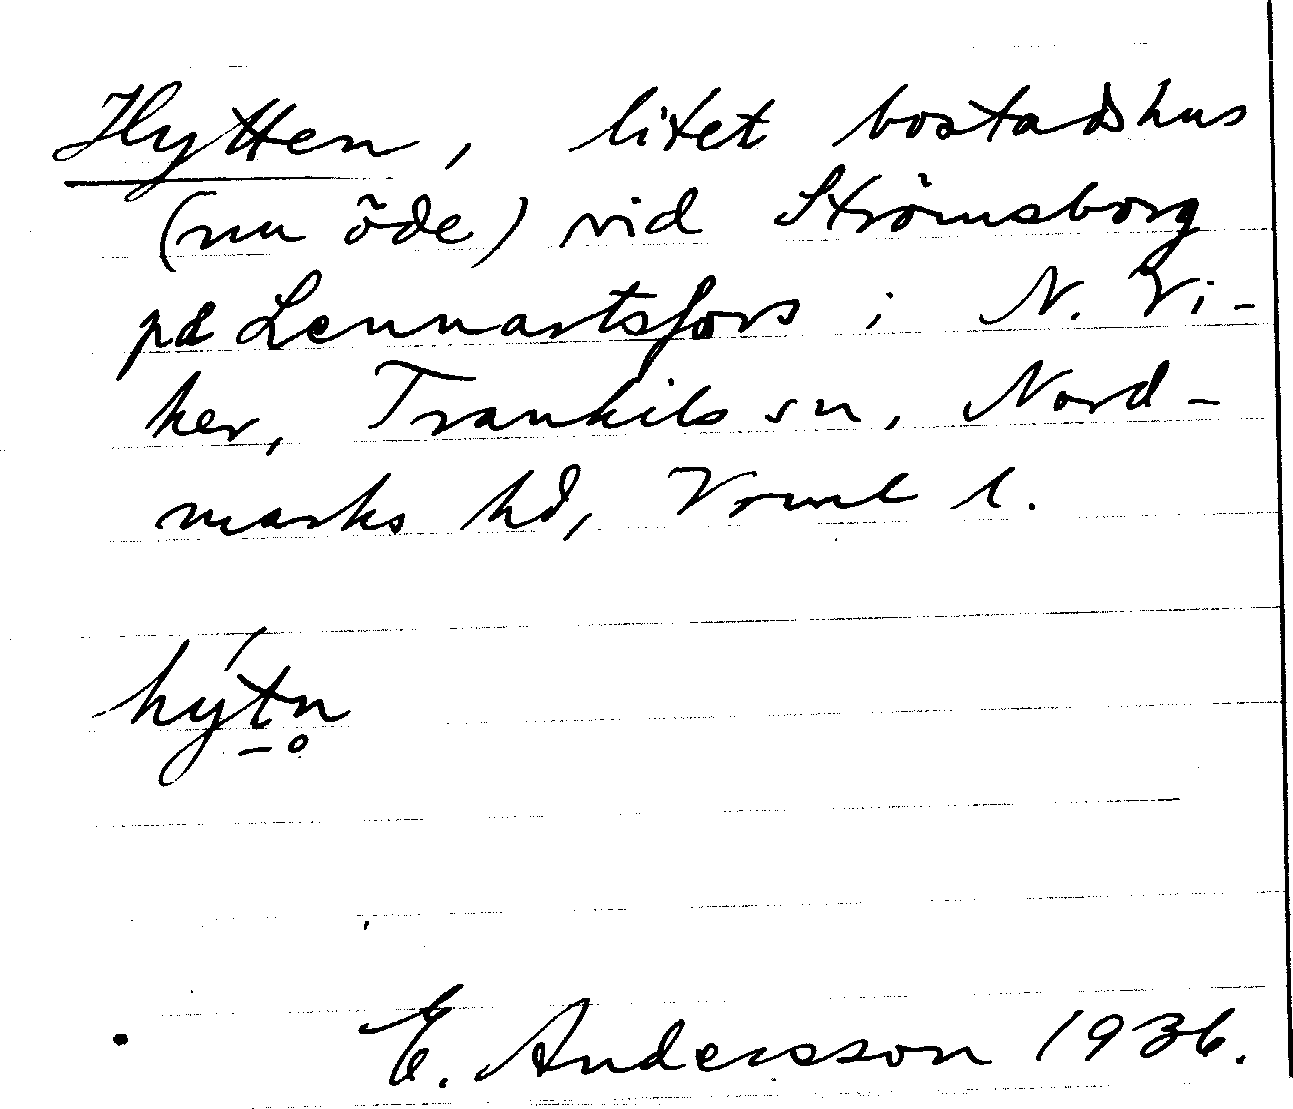 Hytten, litet bostadshus
(nu öde) vid Strömsborg
på Lennartsfors i N. Vi-
ker, Trankils sn, Nord-
marks hd, Vrml l.
hýt̠n̥
E. Andersson 1936.